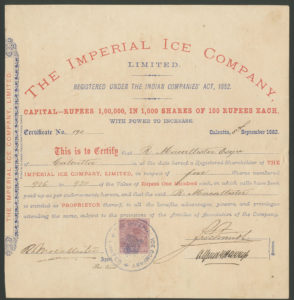 THE IMPERIAL ICE COMPANY,
LIMITED.
REGISTERED UNDER THE INDIAN COMPANIES' ACT, 1882.
CAPITAL—RUPEES 1,00,000, IN 1,000 SHARES OF 100 RUPEES EACH,
WITH POWER TO INCREASE.
Certificate No. 190 Calcutta, September 1882.
This is to Certify that R. Macallister Esquire
of Calcutta is at the date hereof a Registered Shareholder of THE
IMPERIAL ICE COMPANY, LIMITED, in respect of five Shares numbered
926 to 930 of the Value of Rupees One Hundred each, on which calls have been
paid as per endorsements; and that the said R. Macallister
is entitled as PROPRIETOR thereof, to all the benefits, advantages, powers, and privileges
attending the same, subject to the provisions of the Articles of Association of the Company.
R. Macallister
THE IMPERIAL ICE COMPANY, LIMITED.